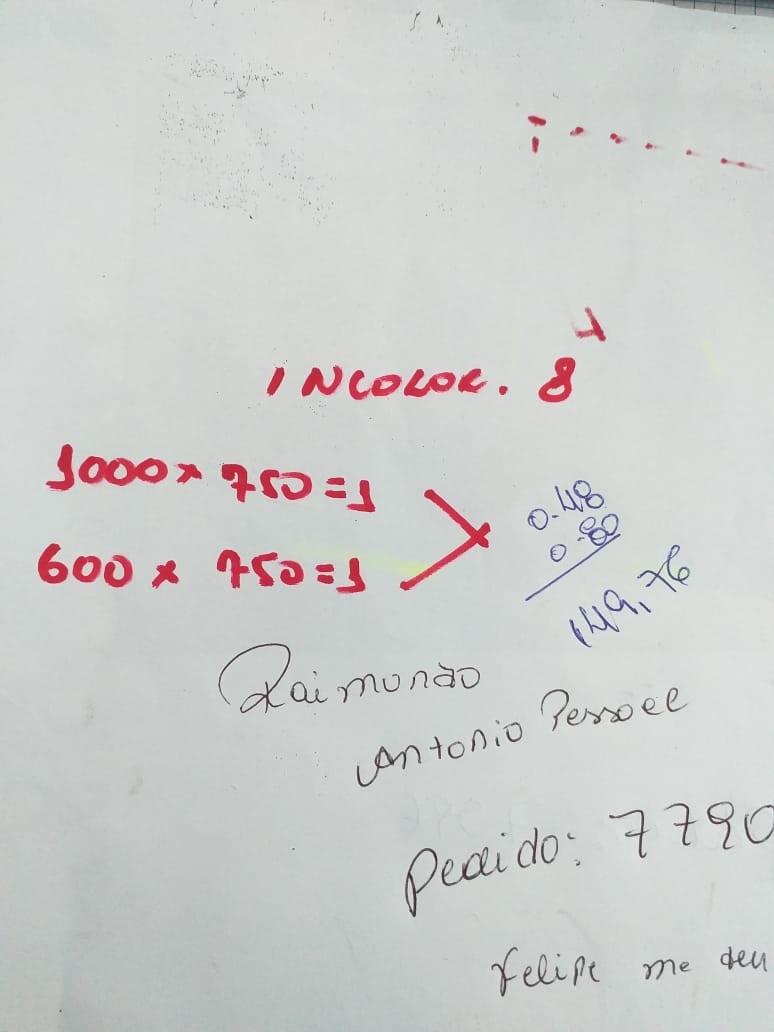 INCOLOR. 8
1000 x 750 = 1
600 x 750 = 1
0.48
0.80
149,76
Raimundo
Antonio Pessoa
Pedido: 7790
Felipe me deu